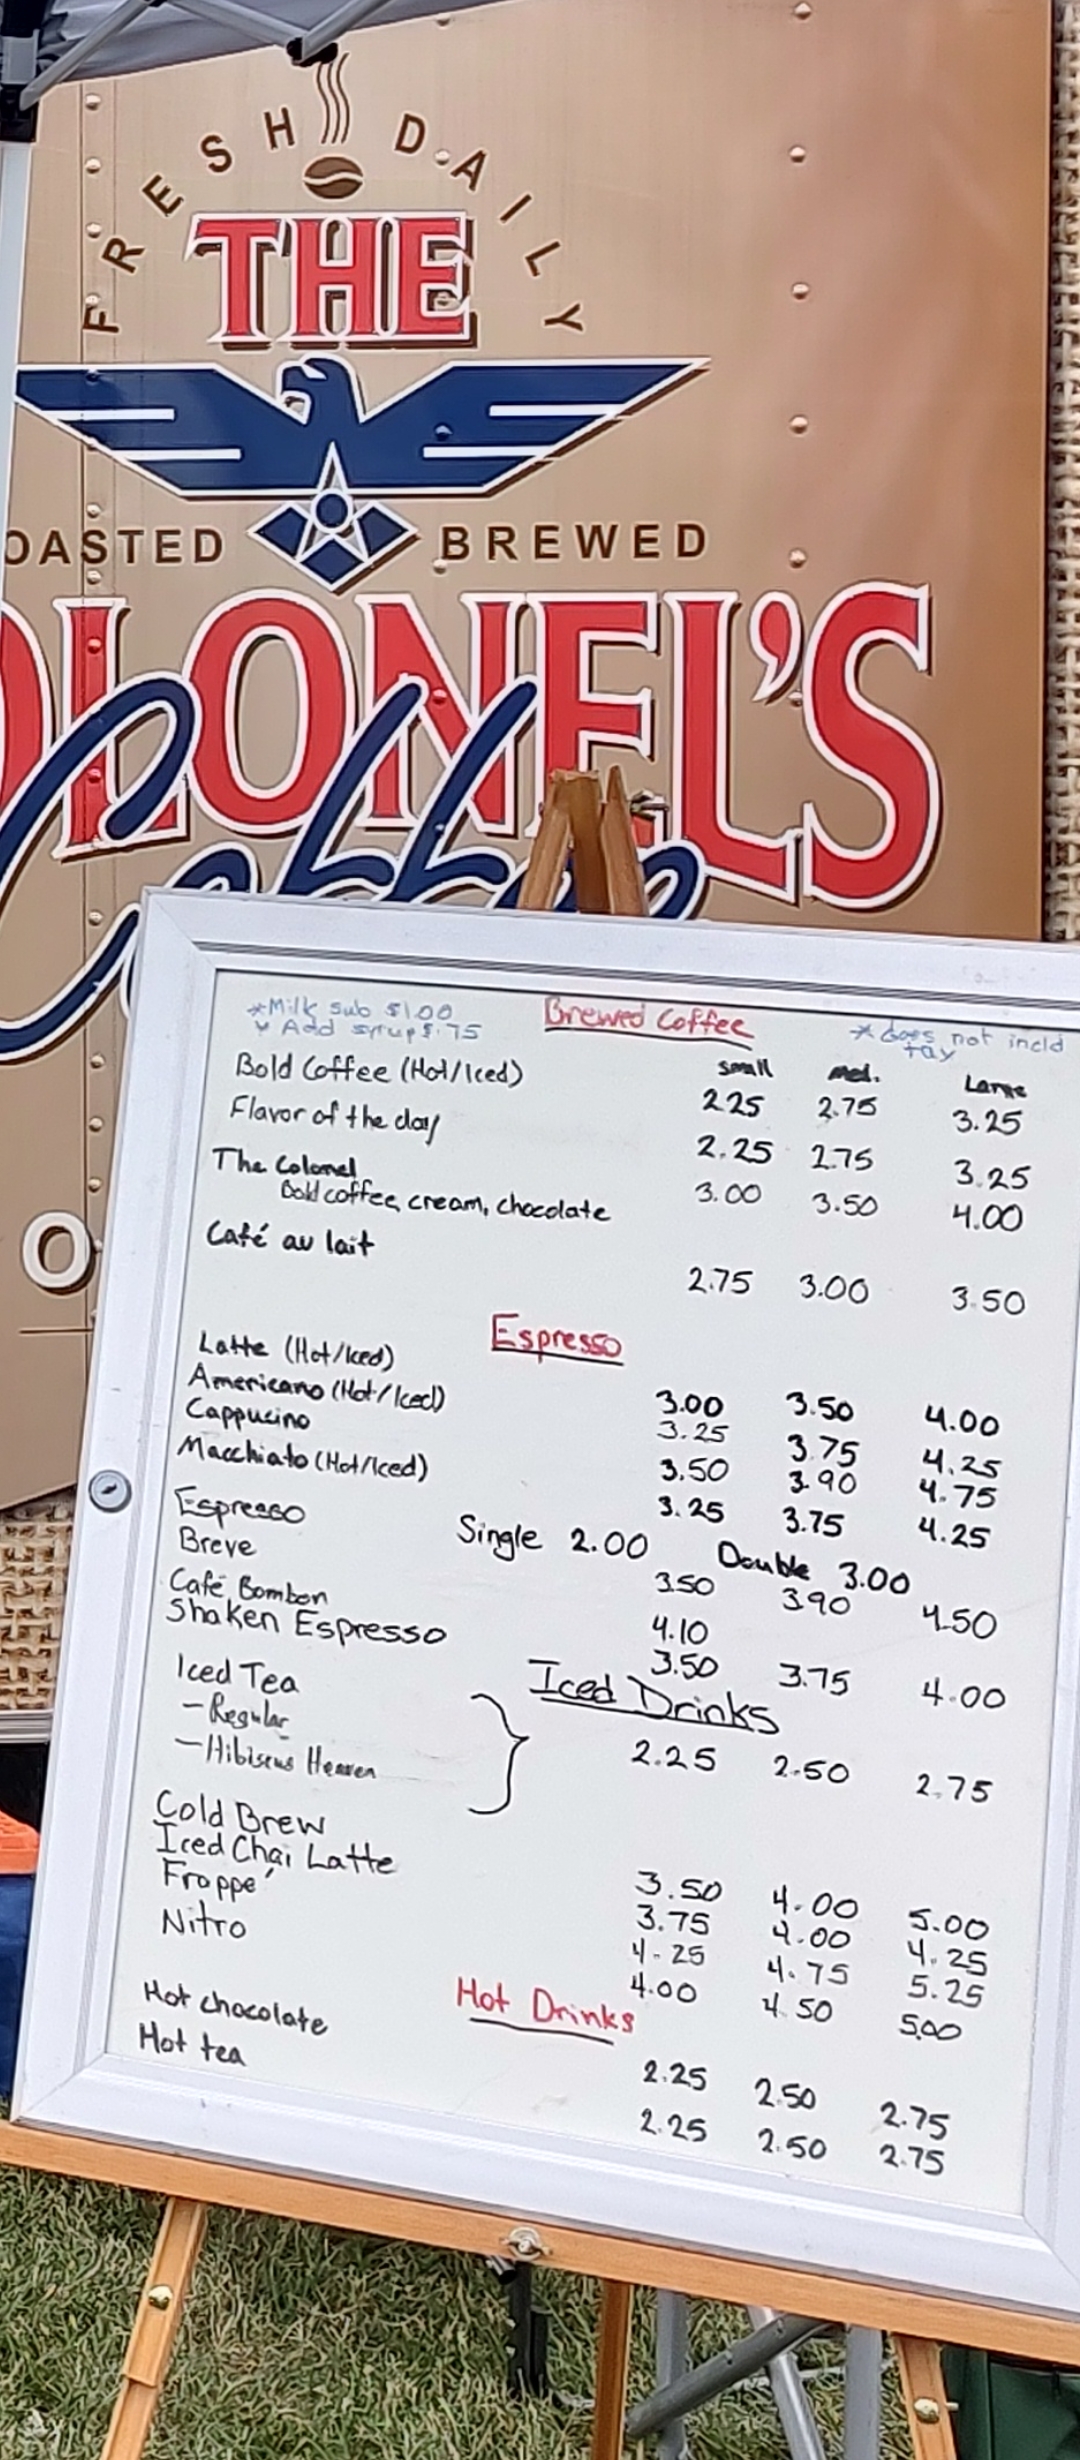 FRESH DAILY
THE
OASTED BREWED
OLONEL'S
Coffee
O
*Milk sub $1.00
* Add syrup $.75
Brewed Coffee
* does not incld
tax
small med. Large
Bold Coffee (Hot/Iced) 2.25 2.75 3.25
Flavor of the day 2.25 2.75 3.25
The Colonel 3.00 3.50 4.00
Bold coffee, cream, chocolate
Café au lait 2.75 3.00 3.50
Espresso
Latte (Hot/Iced) 3.00 3.50 4.00
Americano (Hot/Iced) 3.25 3.75 4.25
Cappucino 3.50 3.90 4.75
Macchiato (Hot/Iced) 3.25 3.75 4.25
Espresso Single 2.00 Double 3.00
Breve 3.50 3.90 4.50
Café Bombon 4.10
Shaken Espresso 3.50 3.75 4.00
Iced Drinks
Iced Tea
- Regular 2.25 2.50 2.75
- Hibiscus Heaven
Cold Brew 3.50 4.00 5.00
Iced Chai Latte 3.75 4.00 4.25
Frappé 4.25 4.75 5.25
Nitro 4.00 4.50 5.00
Hot Drinks
Hot chocolate 2.25 2.50 2.75
Hot tea 2.25 2.50 2.75